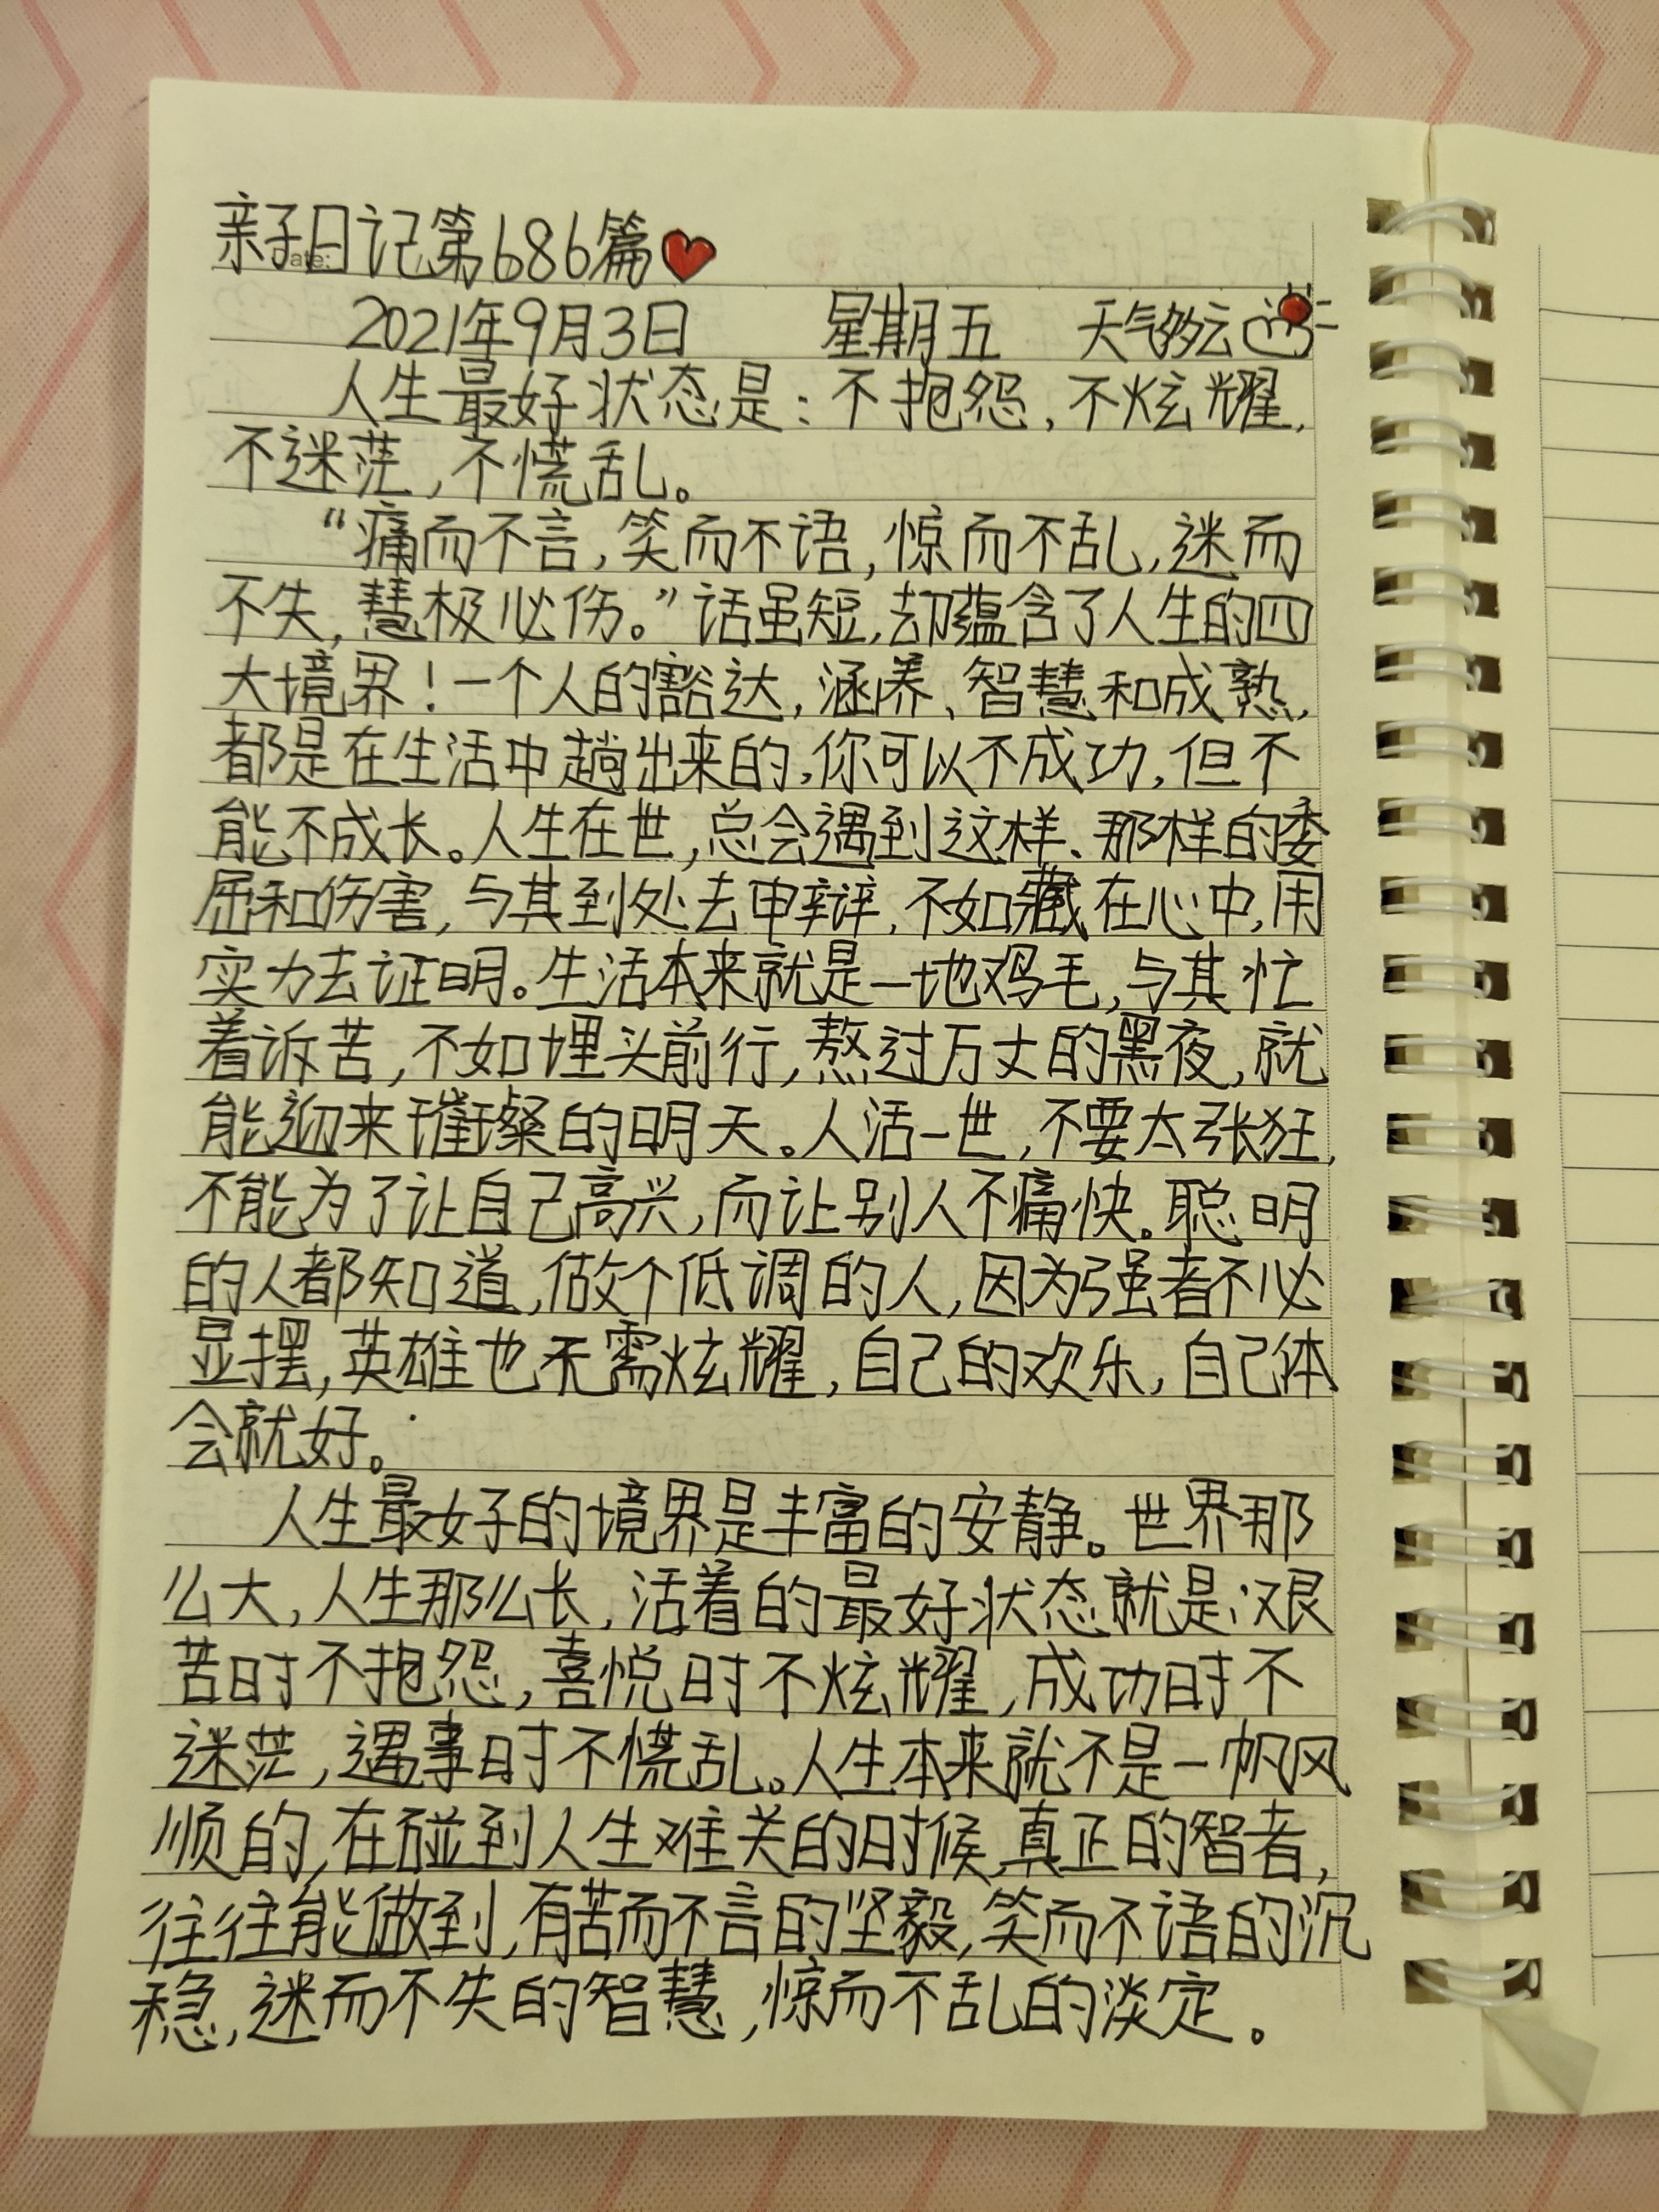 亲子日记第686篇
2021年9月3日 星期五 天气多云
人生最好状态是：不抱怨，不炫耀，
不迷茫，不慌乱。
“痛而不言，笑而不语，惊而不乱，迷而
不失，慧极必伤。”话虽短，却蕴含了人生的四
大境界！一个人的豁达，涵养、智慧和成熟，
都是在生活中趟出来的，你可以不成功，但不
能不成长。人生在世，总会遇到这样、那样的委
屈和伤害，与其到处去申辩，不如藏在心中，用
实力去证明。生活本来就是一地鸡毛，与其忙
着诉苦，不如埋头前行，熬过万丈的黑夜，就
能迎来璀璨的明天。人活一世，不要太张狂，
不能为了让自己高兴，而让别人不痛快。聪明
的人都知道，做个低调的人，因为强者不必
显摆，英雄也无需炫耀，自己的欢乐，自己体
会就好。
人生最好的境界是丰富的安静。世界那
么大，人生那么长，活着的最好状态就是：艰
苦时不抱怨，喜悦时不炫耀，成功时不
迷茫，遇事时不慌乱。人生本来就不是一帆风
顺的，在碰到人生难关的时候，真正的智者，
往往能做到，有苦而不言的坚毅，笑而不语的沉
稳，迷而不失的智慧，惊而不乱的淡定。